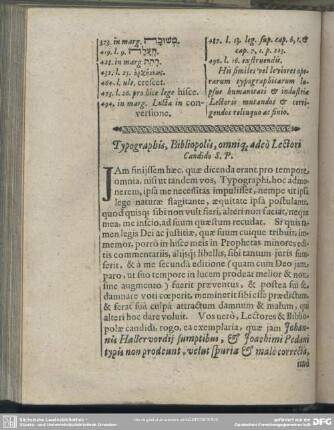 373. in marg. משוכה
419. l. 9. העלה
428. in marg. דתת
432. l. 23.
460. l. ult. crescet.
473. l. 26. pro hicce lege hisce.
494. in marg. Lucta in conversione.
487. l. 13. leg. sup. cap. 6, 1. &
cap. 7, 1. p. 213.
492. l. 16. exstruendis.
His similes vel leviores operarum typographicarum lapsus humanitati & industriæ
Lectoris mutandos & corrigendos relinquo ac finio.
Typographis, Bibliopolis, omniq; adeò Lectori
Candido S. P.
JAm finijssem hæc, quæ dicenda erant pro tempore,
omnia, nisi ut tandem vos, Typographi, hoc admonerem, ipsa me necessitas impulisset, nempe ut ipsa
lege naturæ flagitante, æquitate ipsa postulante,
quod quisq; sibi non vult fieri, alteri non faciat, neq; it
mea, me inscio, ad suum quæstum recudat. Si quis tamen legis Dei ac justitiæ, quæ suum cuique tribuit, immemor, porrò in hisce meis in Prophetas minores editis commentariis, alijsq; libellis, sibi tantum juris sumserit, & à me secundâ editione (quam cum Deo jam
paro, ut suo tempore in lucem prodeat melior & non
sine augmento) fuerit præventus, & postea sui se,
damnare voti cœperit, meminerit sibi esse prædictum,
& ferat suâ culpâ attractum damnum & malum, qui
alteri hoc dare voluit. Vos verò, Lectores & Bibliopolæ candidi, rogo, ea exemplaria, quæ jam Johannis Hallervordij sumptibus, & Joachimi Pedani
typis non prodeunt, velut spuria & malè correcta,